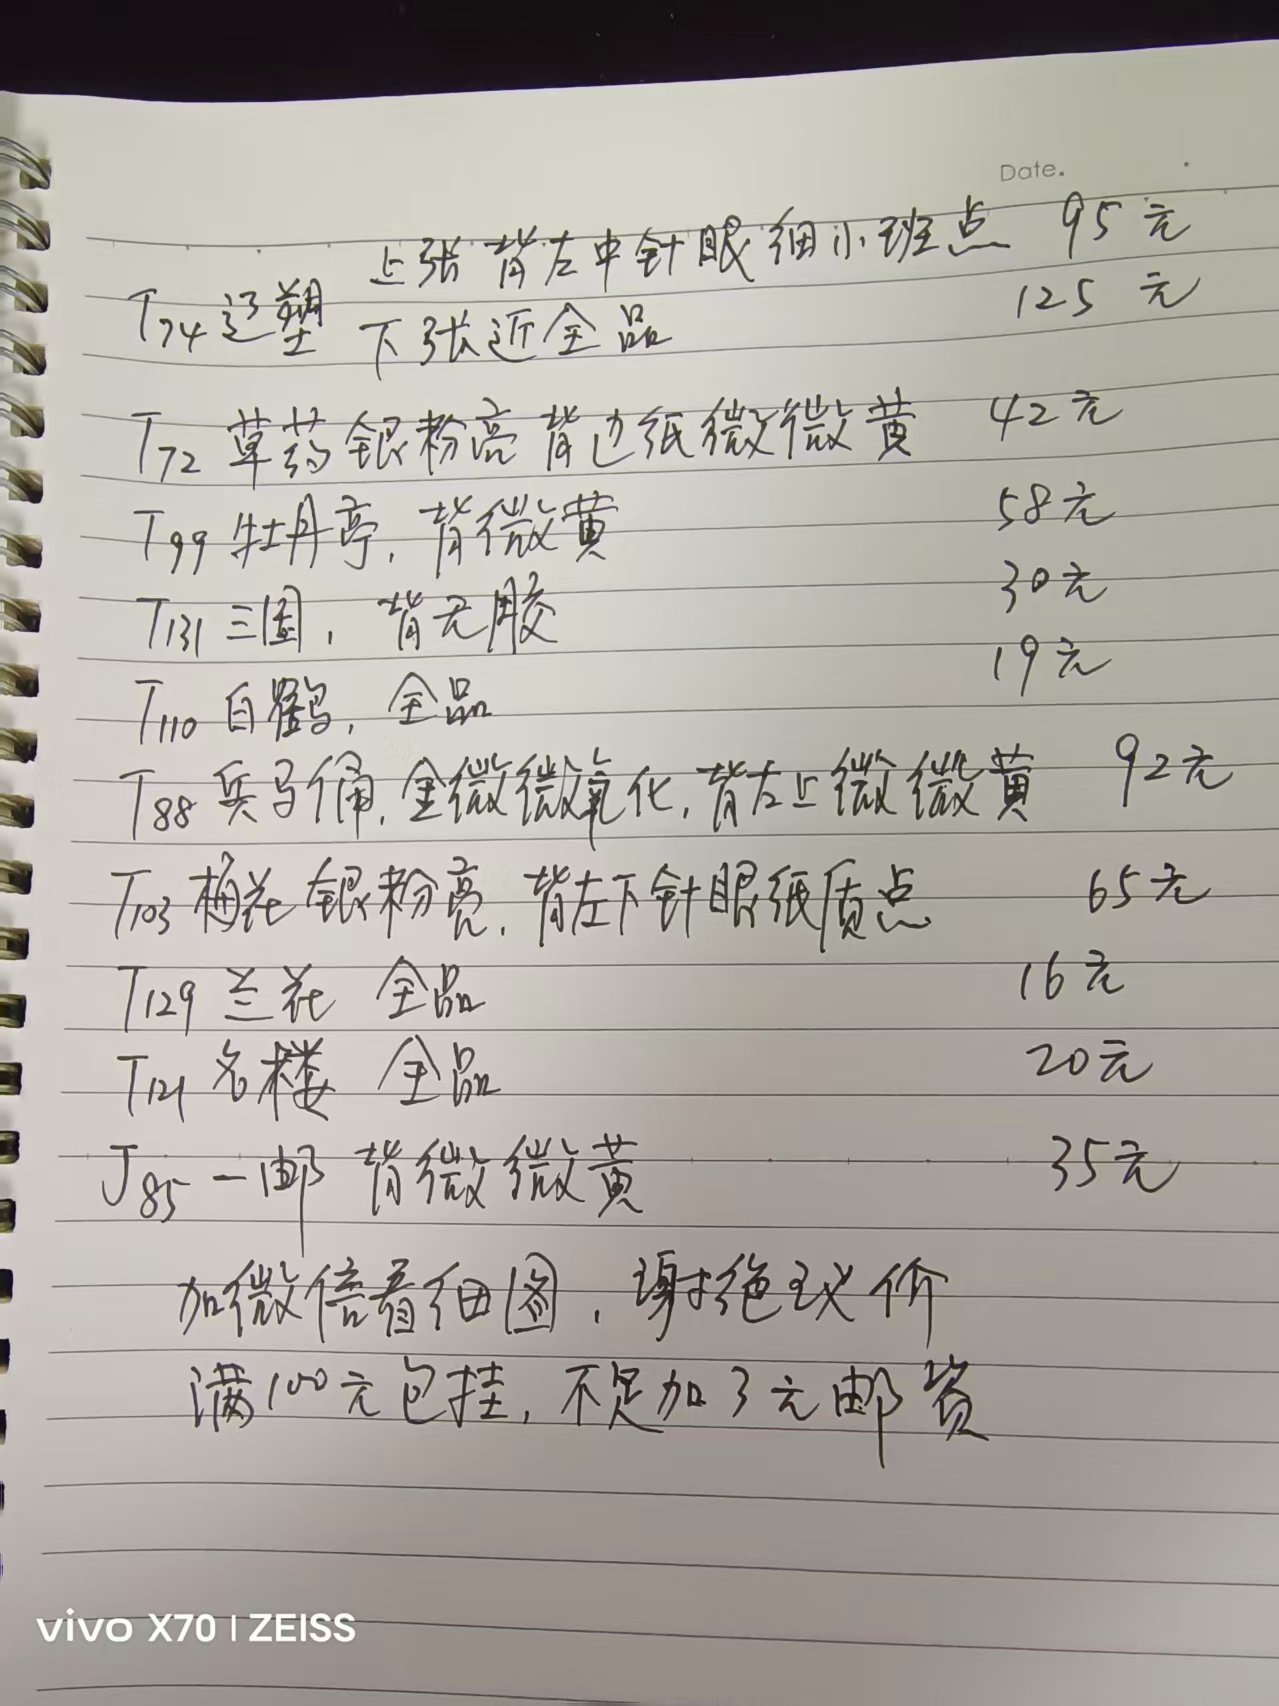 Date.
上张背左中针眼细小班点 95元
T74辽塑 下张近全品 125元
T72 草药银粉亮背边纸微微黄 42元
T99 牡丹亭,背微黄 58元
T131 三国,背无胶 30元
T110 白鹤,全品 19元
T88 兵马俑,金微微氧化,背左上微微黄 92元
T103 梅花银粉亮,背左下针眼纸质点 65元
T129 兰花 全品 16元
T121 名楼 全品 20元
J85 一邮 背微微黄 35元
加微信看细图,谢绝议价
满100元包挂,不足加3元邮资
vivo X70 | ZEISS